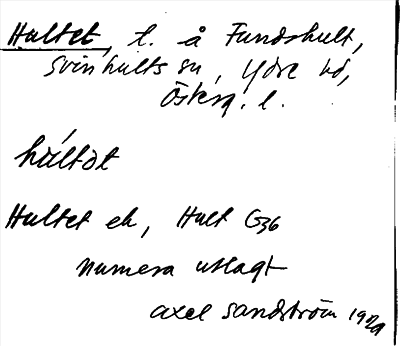 Hultet, t. å Fundshult,
Svinhults sn, Ydre hd,
Österg. l.
húltət
Hultet ek, Hult G36
numera utlagt
Axel Sandström 1929